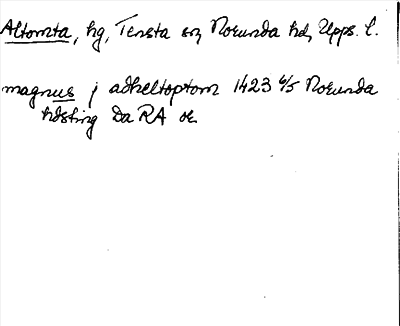 Altomta, hg, Tensta sn Norunda hd, Upps. l.
magnus j adheltoptom 1423 6/5 Norunda
hdsting Da RA or.